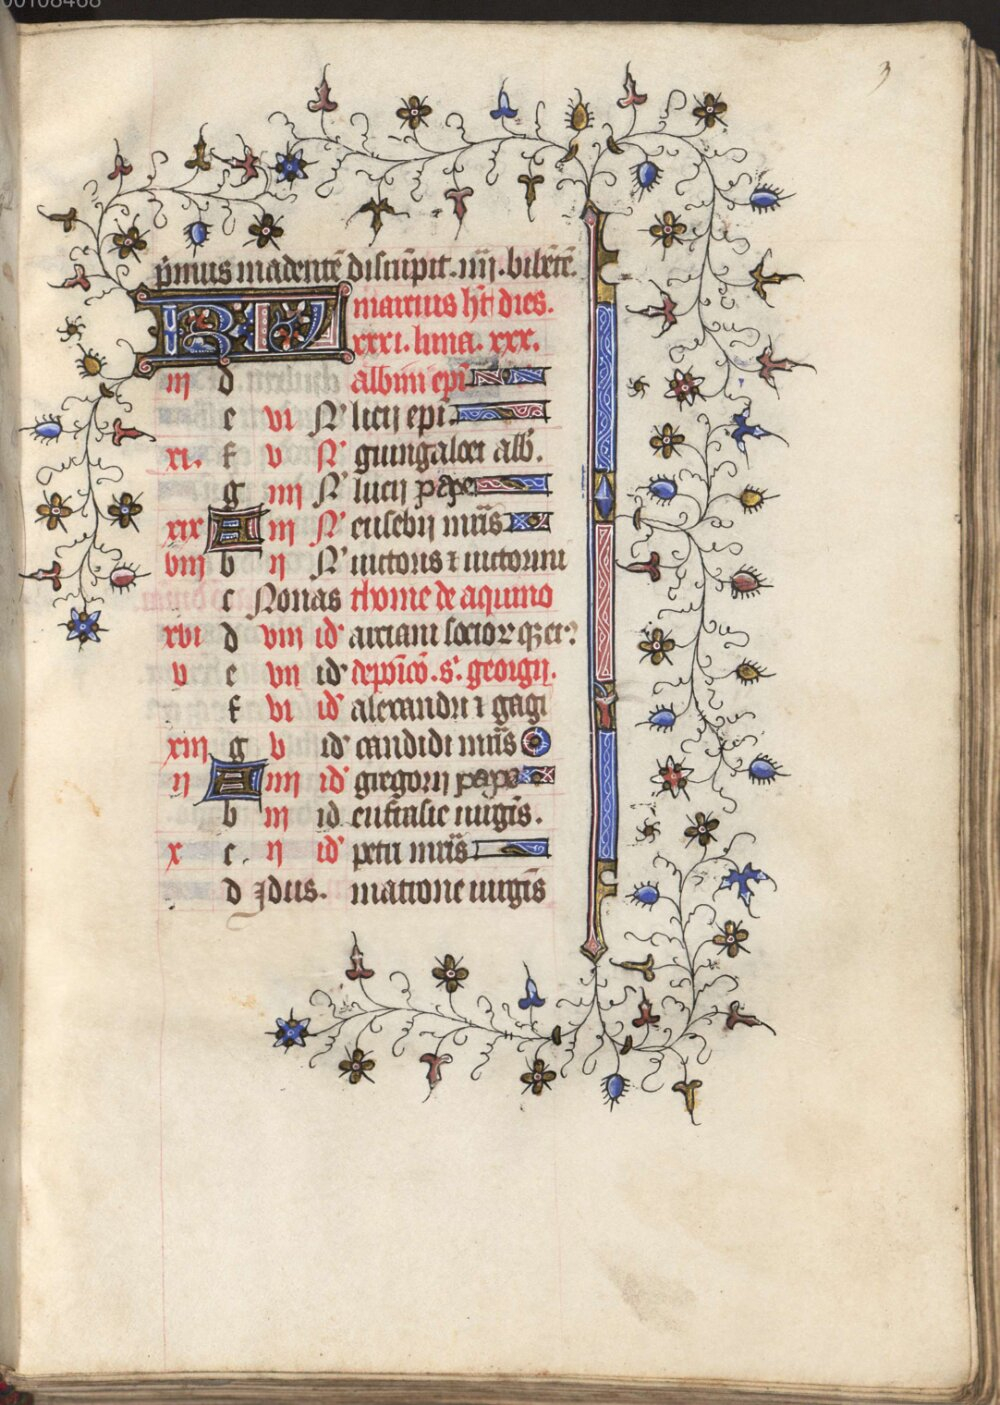 00108468
3
p̄mus madentē disrūpit. iiij. bibētē.
KL marcius hꝫ dies.
xxxi. luna. xxx.
iij d albini epī
e vi N' lucij epī.
xi. f v N' guingaloei abb̄.
g iiij N' lucij pape
xix A iij N' eusebij mr̄is
viij b ij N' victoris ⁊ victorini
c Nonas thome de aquino
xvi d viij id' arriani socioꝝ qꝫ ei⁹
v e vij id' s. georgij.
f vi id' alexandri ⁊ gagi
xiij g v id' candidi mr̄is
ij A iiij id' gregorij pape
b iij id eufrasie virgīs.
x c. ij id' petri mr̄is
d Idus. matrone virgīs